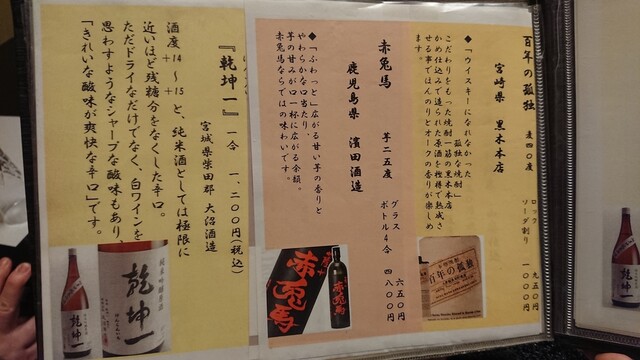 百年の孤独　麦四〇度
宮崎県　黒木本店
ロック　九五〇円
ソーダ割り　一〇〇〇円
◆「ウイスキーになれなかった
孤独な焼酎」
こだわりをもった焼酎一筋の黒木本店
かめ仕込みで造られた原酒を樫樽で熟成さ
せる事でほんのりとオークの香りが楽しめ
ます。
百年の孤独
赤兎馬　芋二五度
鹿児島県　濱田酒造
グラス　六五〇円
ボトル４合　四八〇〇円
◆「ふわっと」広がる甘い芋の香りと
やわらかな口当たり、
芋の甘みが口一杯に広がる余韻。
赤兎馬ならではの味わいです。
赤兎馬
『乾坤一』　一合　一、二〇〇円(税込)
宮城県柴田郡　大沼酒造
酒度+14～+15と、純米酒としては極限に
近いほど残糖分をなくした辛口。
ただドライなだけでなく、白ワインを
思わすようなシャープな酸味もあり、
「きれいな酸味が爽快な辛口」です。
純米吟醸原酒
乾坤一
乾坤一